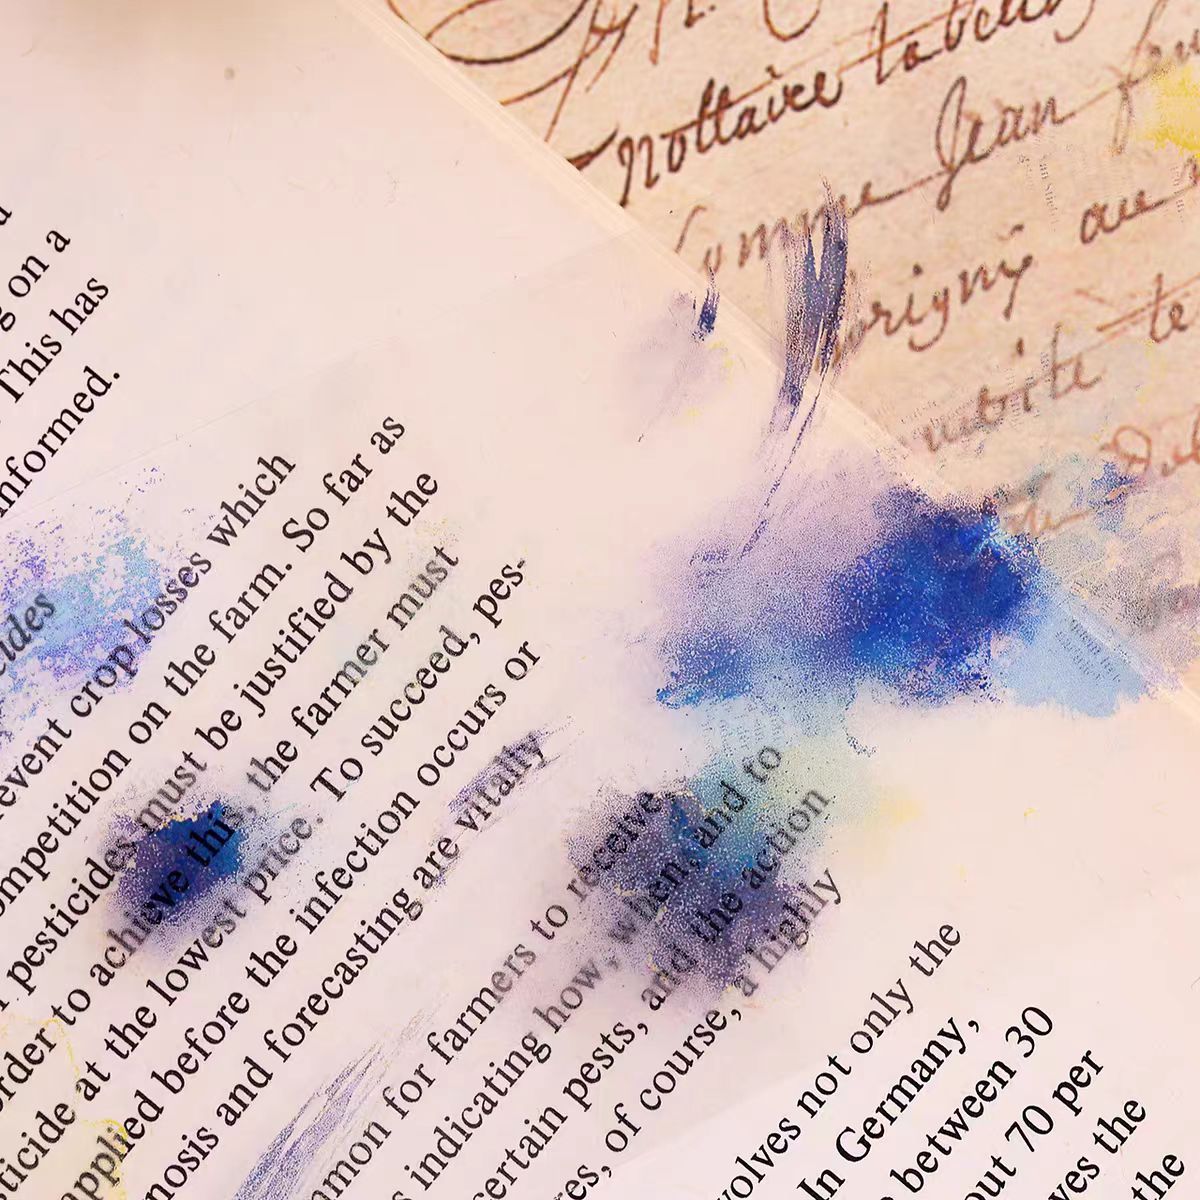 Nottaire tabell
Comme Jean
origny au
te
g on a
This has
informed.
cides
event crop losses which
ompetition on the farm. So far as
pesticides must be justified by the
order to achieve this, the farmer must
ticide at the lowest price. To succeed, pes-
applied before the infection occurs or
nosis and forecasting are vitality
mmon for farmers to receive
s indicating how, when, and to
certain pests, and the action
res, of course, a highly
volves not only the
In Germany,
between 30
out 70 per
ves the
the